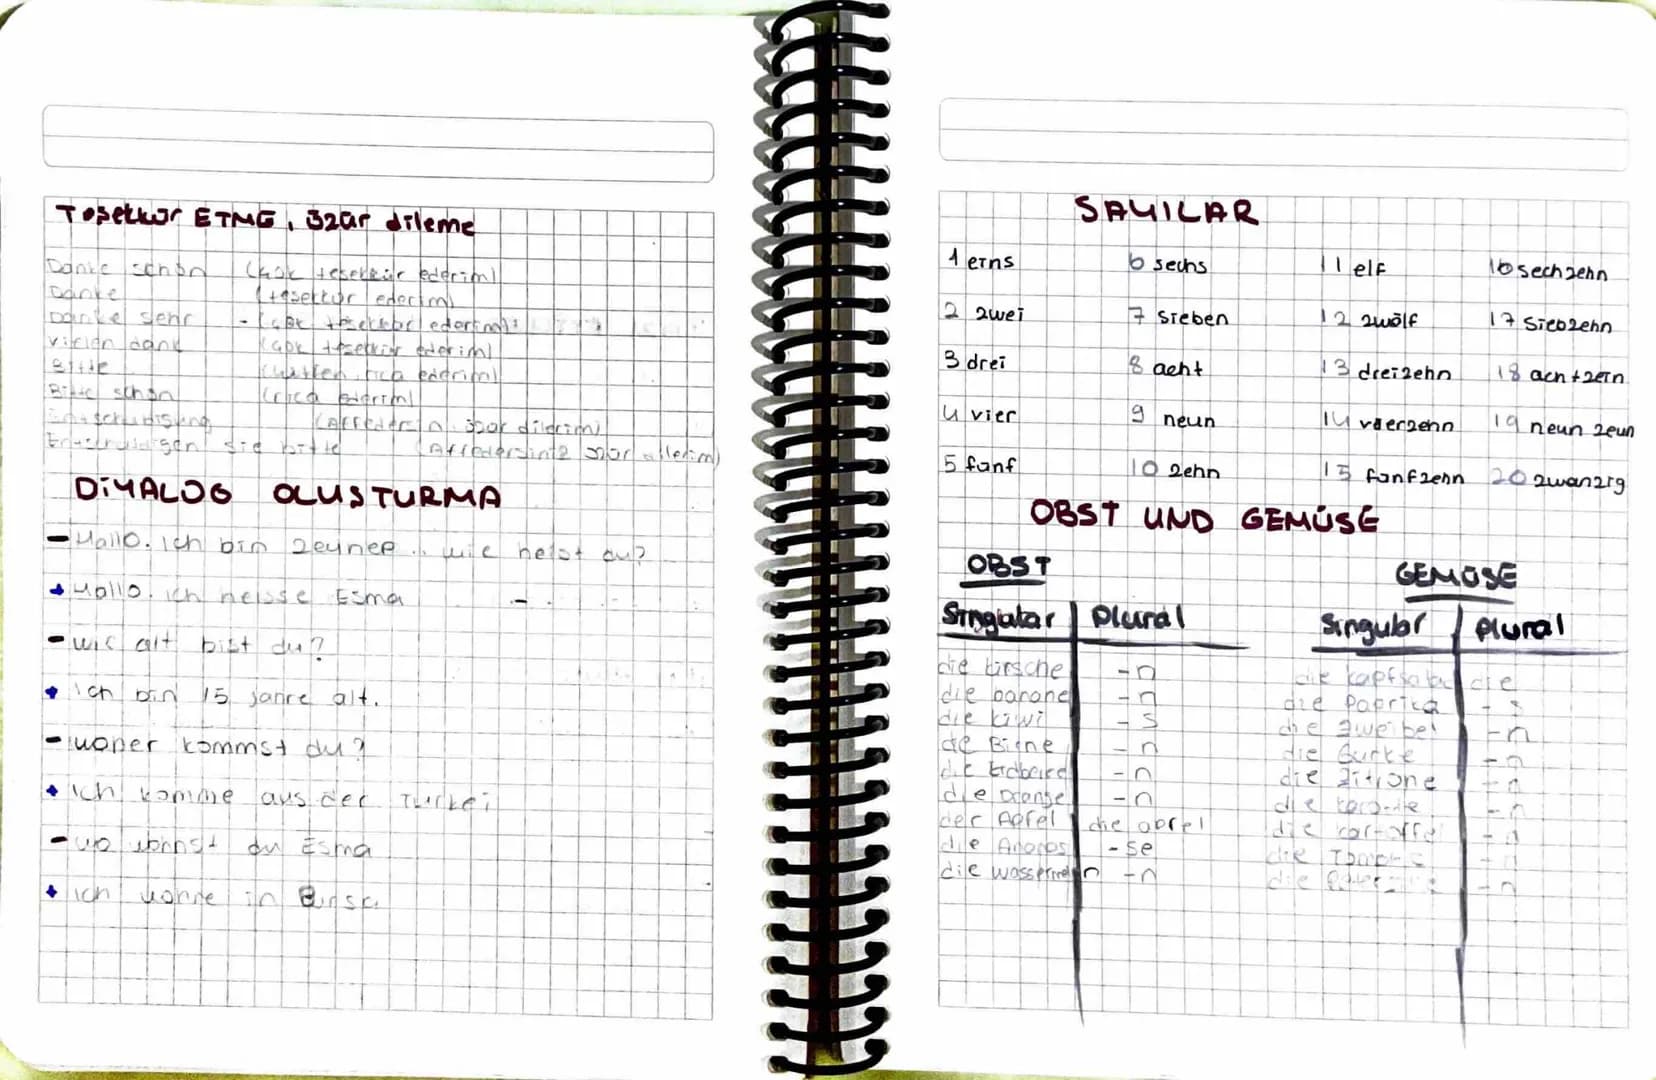 Teşekkür ETME, özür dileme
Danke schön (çok teşekkür ederim)
Danke (teşekkür ederim)
Danke sehr - (çok teşekkür ederim)
vielen dank (çok teşekkür ederim)
Bitte (lütfen, rica ederim)
Bitte schön (rica ederim)
Entschuldigung (Affedersin, özür dilerim)
Entschuldigen sie bitte (Affedersiniz özür dilerim)
DİYALOG OLUSTURMA
- Hallo. Ich bin Zeynep .. wie heist du?
+ Hallo. ich heisse Esma
- wie alt bist du?
+ ich bin 15 jahre alt.
- woher kommst du?
+ ich komme aus der Türkei
- wo wohnst du Esma
+ ich wohne in Bursa
SAYILAR
1 eins 6 sechs 11 elf 16 sechzehn
2 zwei 7 sieben 12 zwölf 17 siebzehn
3 drei 8 acht 13 dreizehn 18 achtzein
4 vier 9 neun 14 vierzehn 19 neun zeun
5 fünf 10 zehn 15 fünfzehn 20 zwanzig
OBST UND GEMÜSE
OBST GEMÜSE
Singular Plural Singular Plural
die kirsche -n die kopfsalat die
die banane -n die Paprika - s
die kiwi - s die zweibel -n
die Birne -n die Gurke -n
die Erdbeere -n die zitrone -n
die Orange -n die karotte -n
der Apfel die äpfel die kartoffel -n
die Ananas -se die Tomate -n
die wassermelon -n die -n